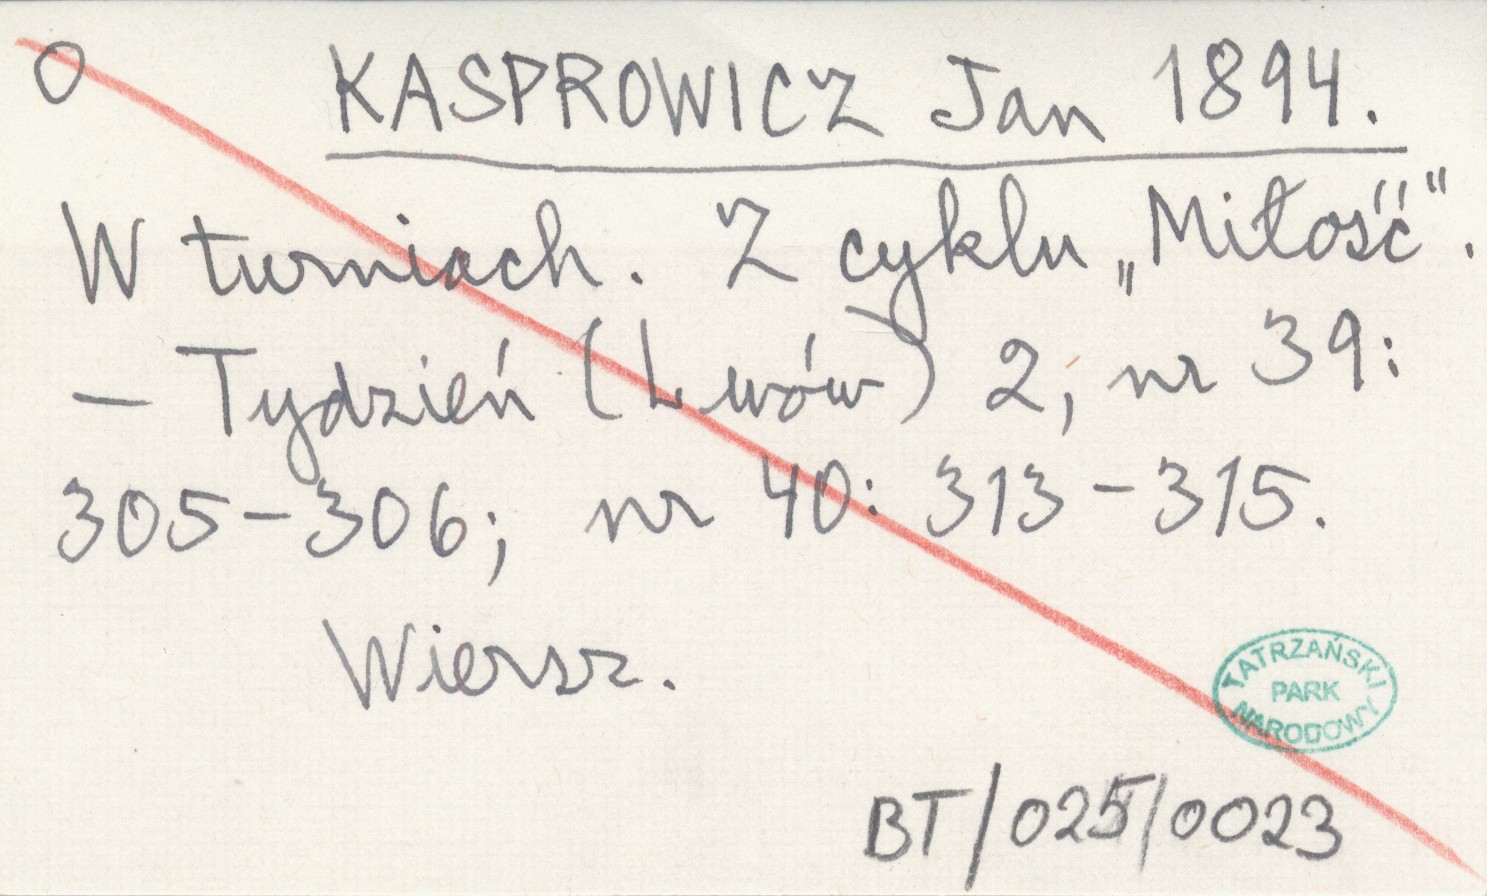 O KASPROWICZ Jan 1894.
W turniach. Z cyklu „Miłość".
– Tydzień (Lwów) 2, nr 39:
305–306; nr 40: 313–315.
Wiersz.
TATRZAŃSKI
PARK
NARODOWY
BT/025/0023